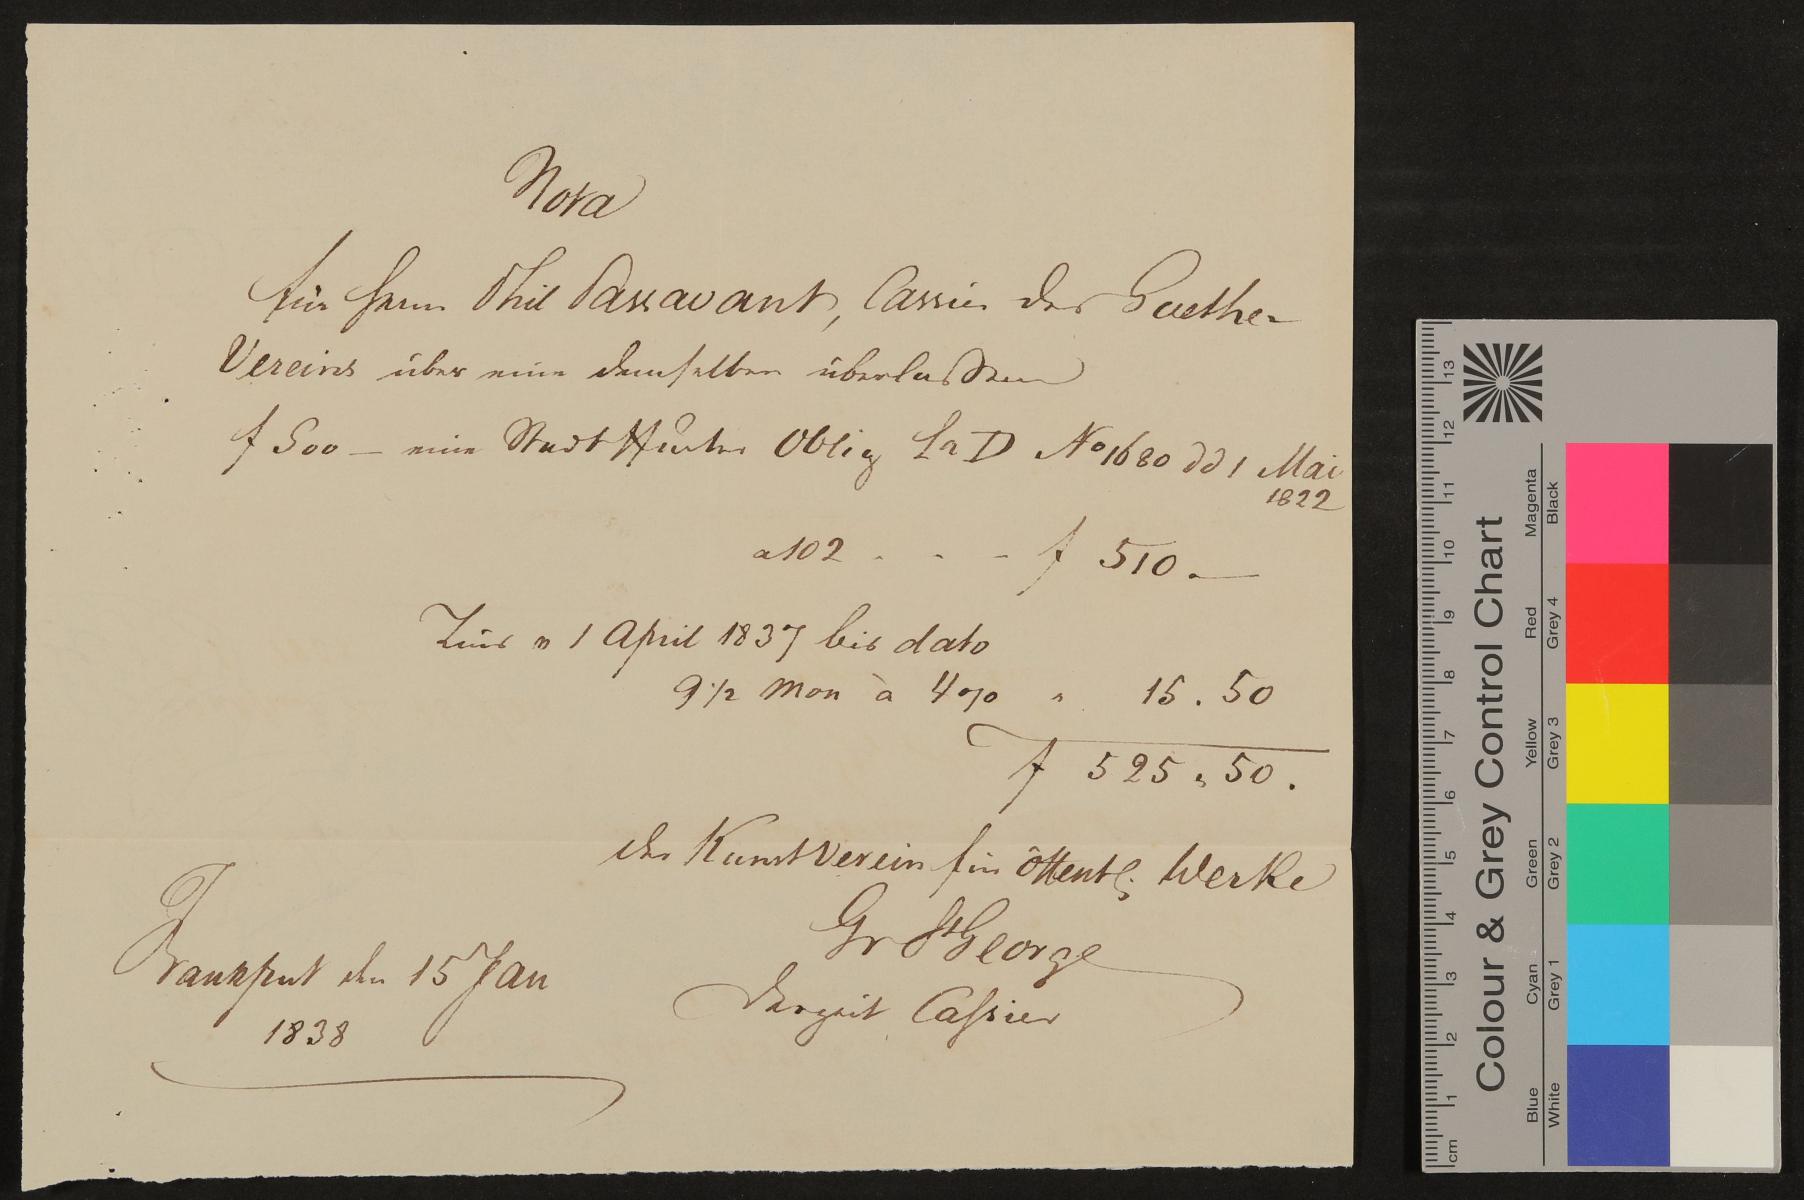 Nota
für Herrn Phil Passavant, Cassier des Goethe-
Vereins über eine demselben überlassene
f 500 — eine Stadt Obligː La D No 1680 dd 1 Mai
1822
a 102 - - - f 510.—
Zins v 1 April 1837 bis dato
9 1/2 Mon à 4 % " 15.50
f 525.50.
der Kunstverein für öffentlː Werke
Gr St George
derzeit Cassier
Frankfurt den 15 Jan
1838
Colour & Grey Control Chart
Blue Cyan Green Yellow Red Magenta
White Grey 1 Grey 2 Grey 3 Grey 4 Black
cm 1 2 3 4 5 6 7 8 9 10 11 12 13